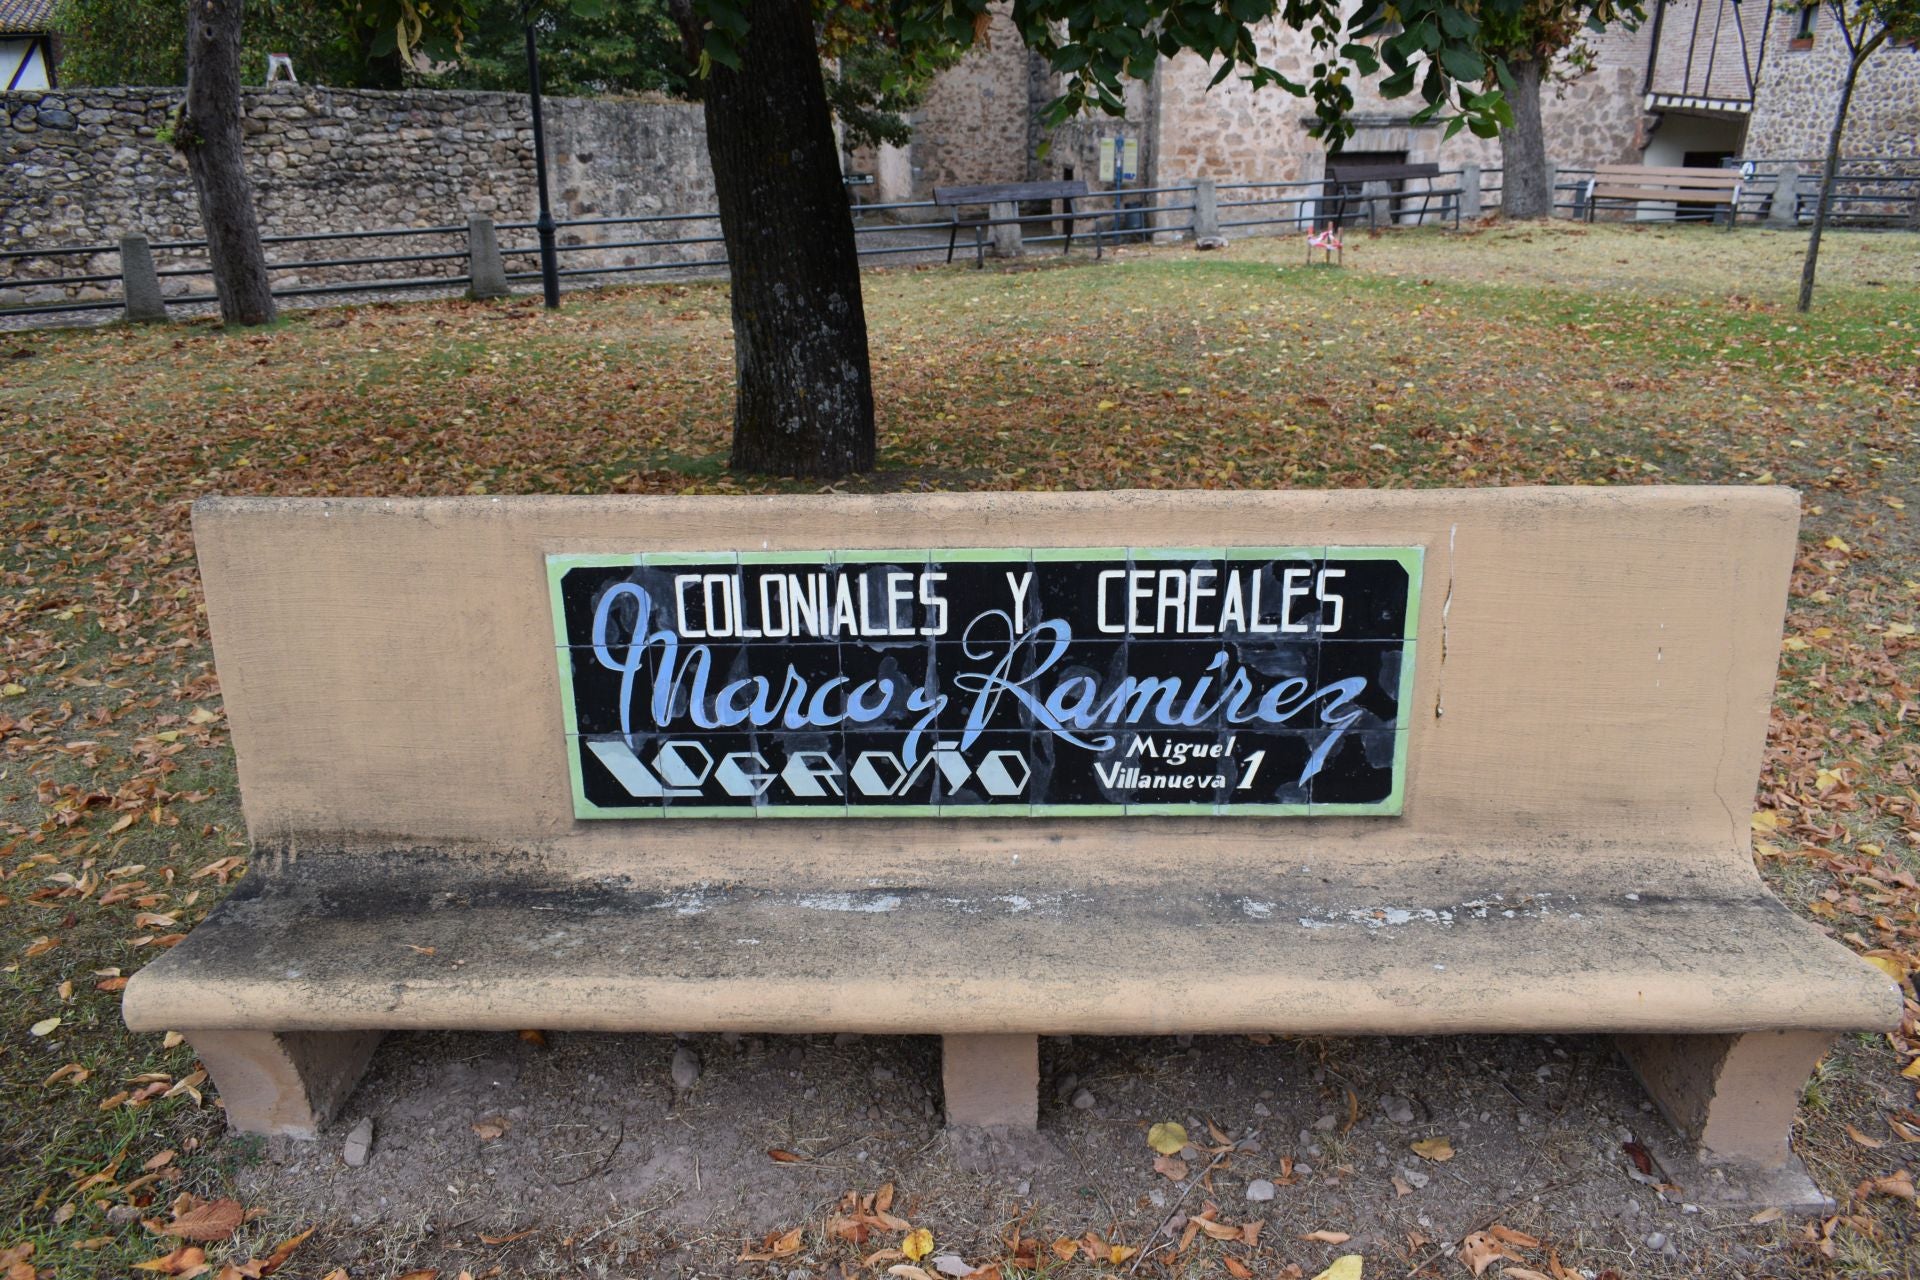 COLONIALES Y CEREALES
Marco y Ramírez
LOGROÑO
Miguel
Villanueva 1